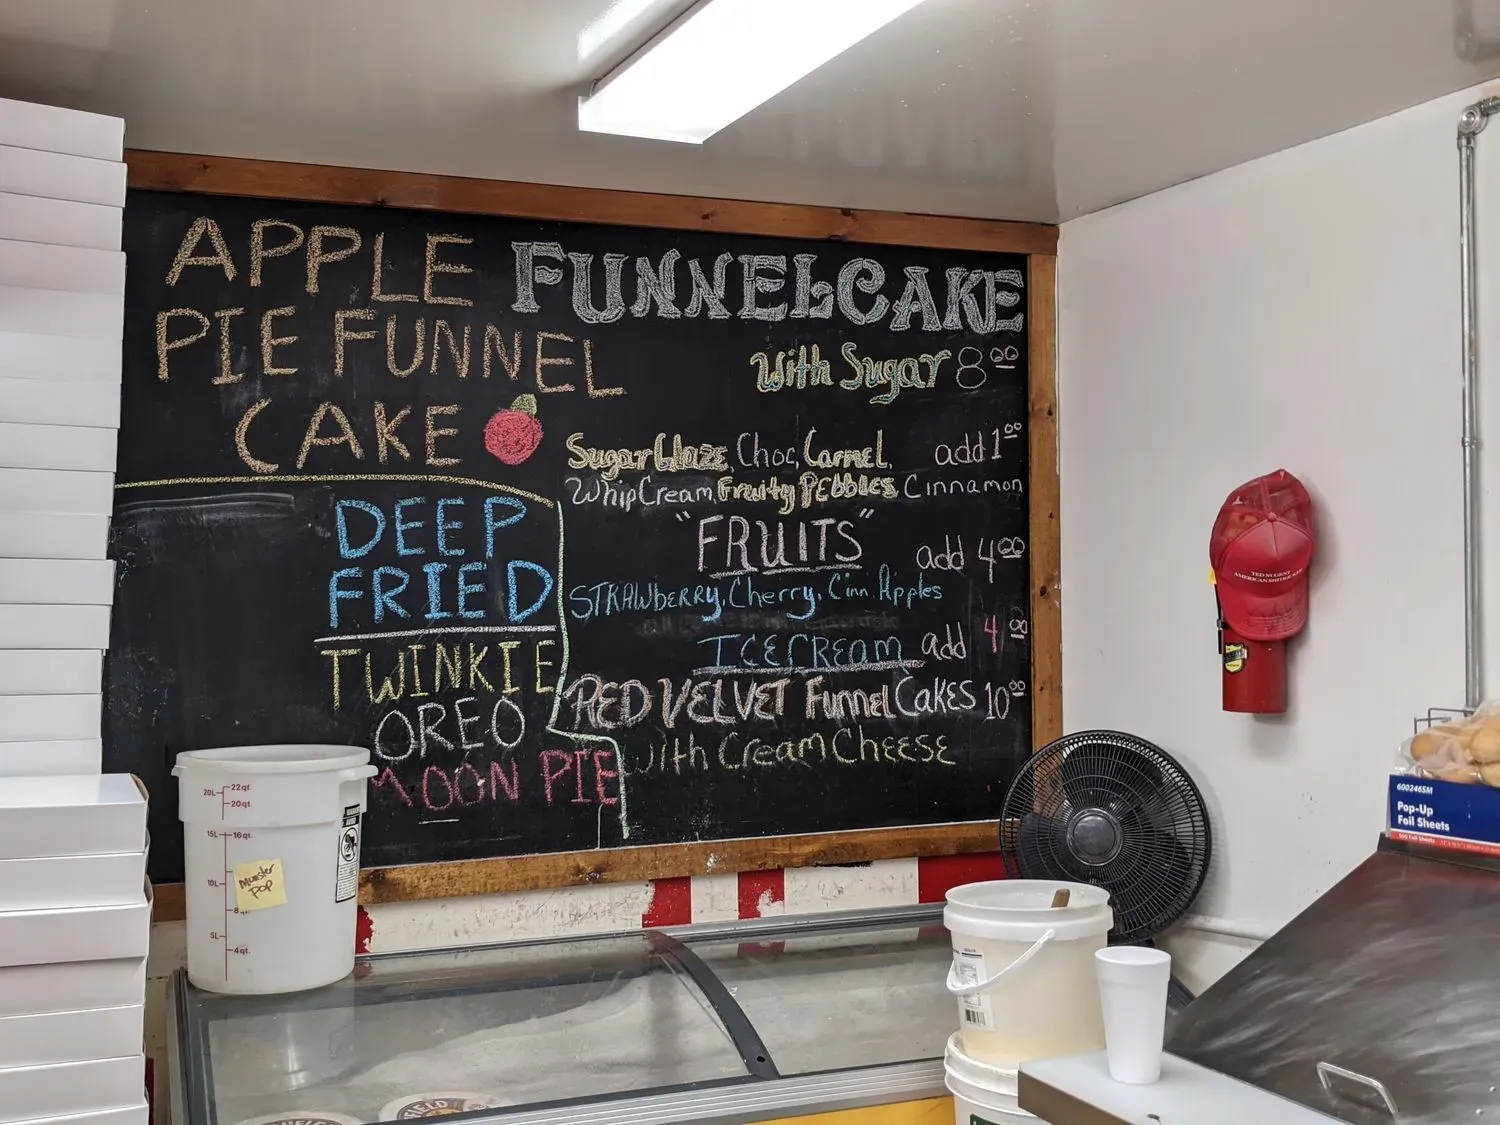 APPLE
PIE FUNNEL
CAKE
DEEP
FRIED
TWINKIE
OREO
MOON PIE
FUNNEL CAKE
With Sugar 8.00
Sugar Glaze, Choc, Carmel, add 1.00
Whip Cream, Fruity PEbbles, Cinnamon
"FRUITS" add 4.00
STRAWbERRY, Cherry, Cinn. Apples
ICE CREAM add 4.00
RED VELVET Funnel CAKES 10.00
with Cream CHEESE
22qt.
20L 20qt.
15L 16qt.
10L
8
5L 4qt.
Monster
Pop
TED NUGENT
600246SM
Pop-Up
Foil Sheets